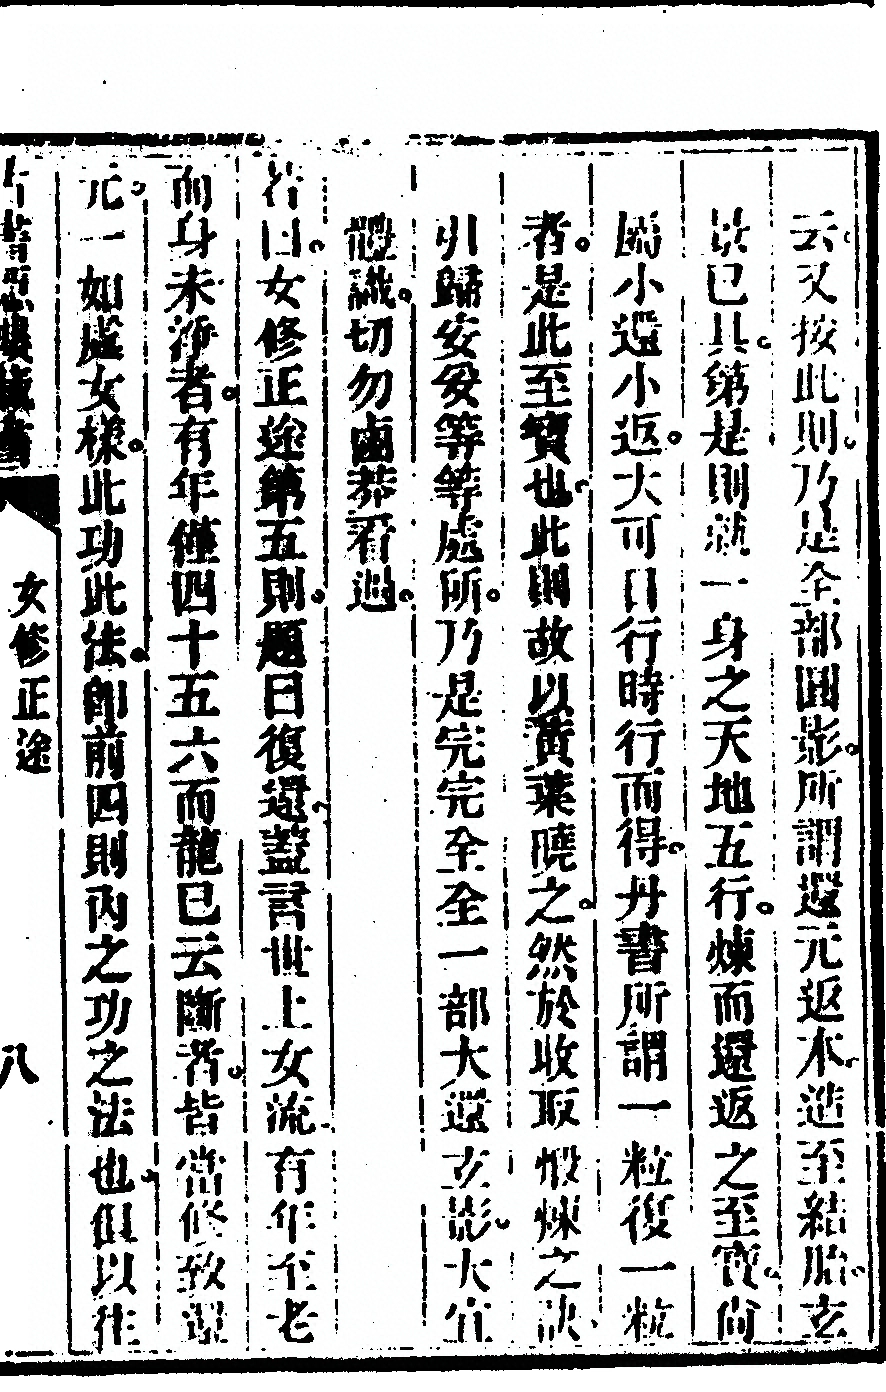 云又按此則乃是全部圓影所謂還元返本造至結胎玄
景已具第是則就一身之天地五行煉而還返之至寶尙
屬小還小返大可日行時行而得丹書所謂一粒復一粒
者是此至寶也此則故以黃葉曉之然於收取煅煉之訣
引歸安爰等等處所乃是完完全全一部大還玄影大宜
體識切勿鹵莽看過
若曰女修正途第五則題曰復還蓋言世上女流有年至老
而身未淨者有年僅四十五六而龍已云斷者皆當修致還
元一如處女樣此功此法卽前四則內之功之法也但以往
女修正途
八